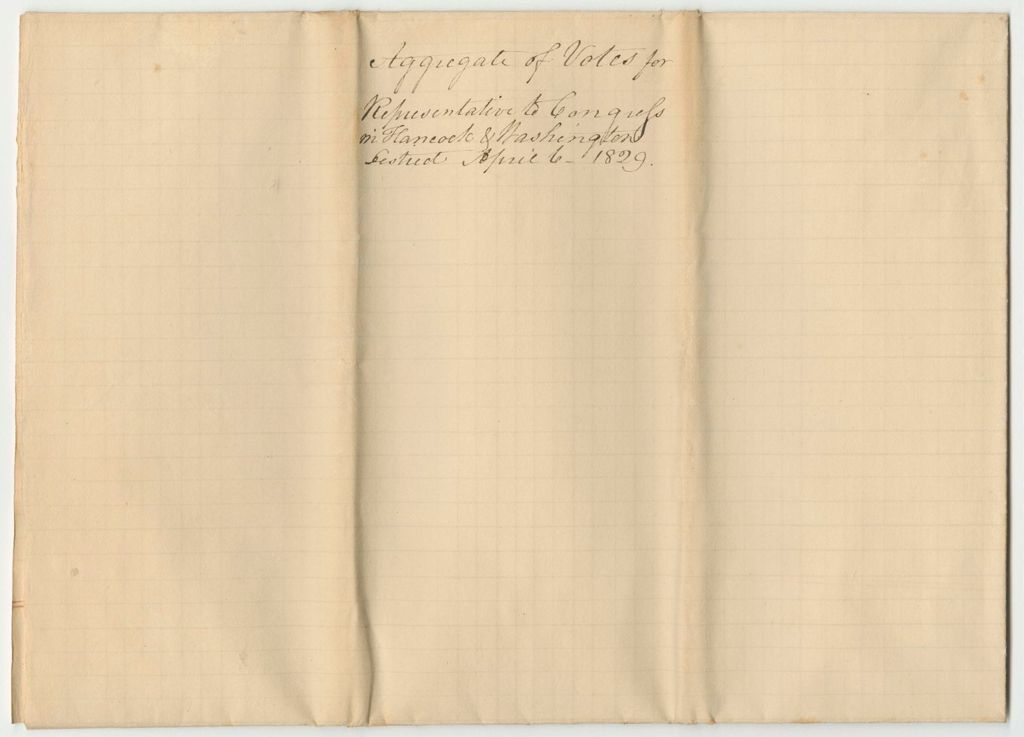 Aggregate of Votes for
Representative to Congress
in Hancock & Washington
District April 6 - 1829.